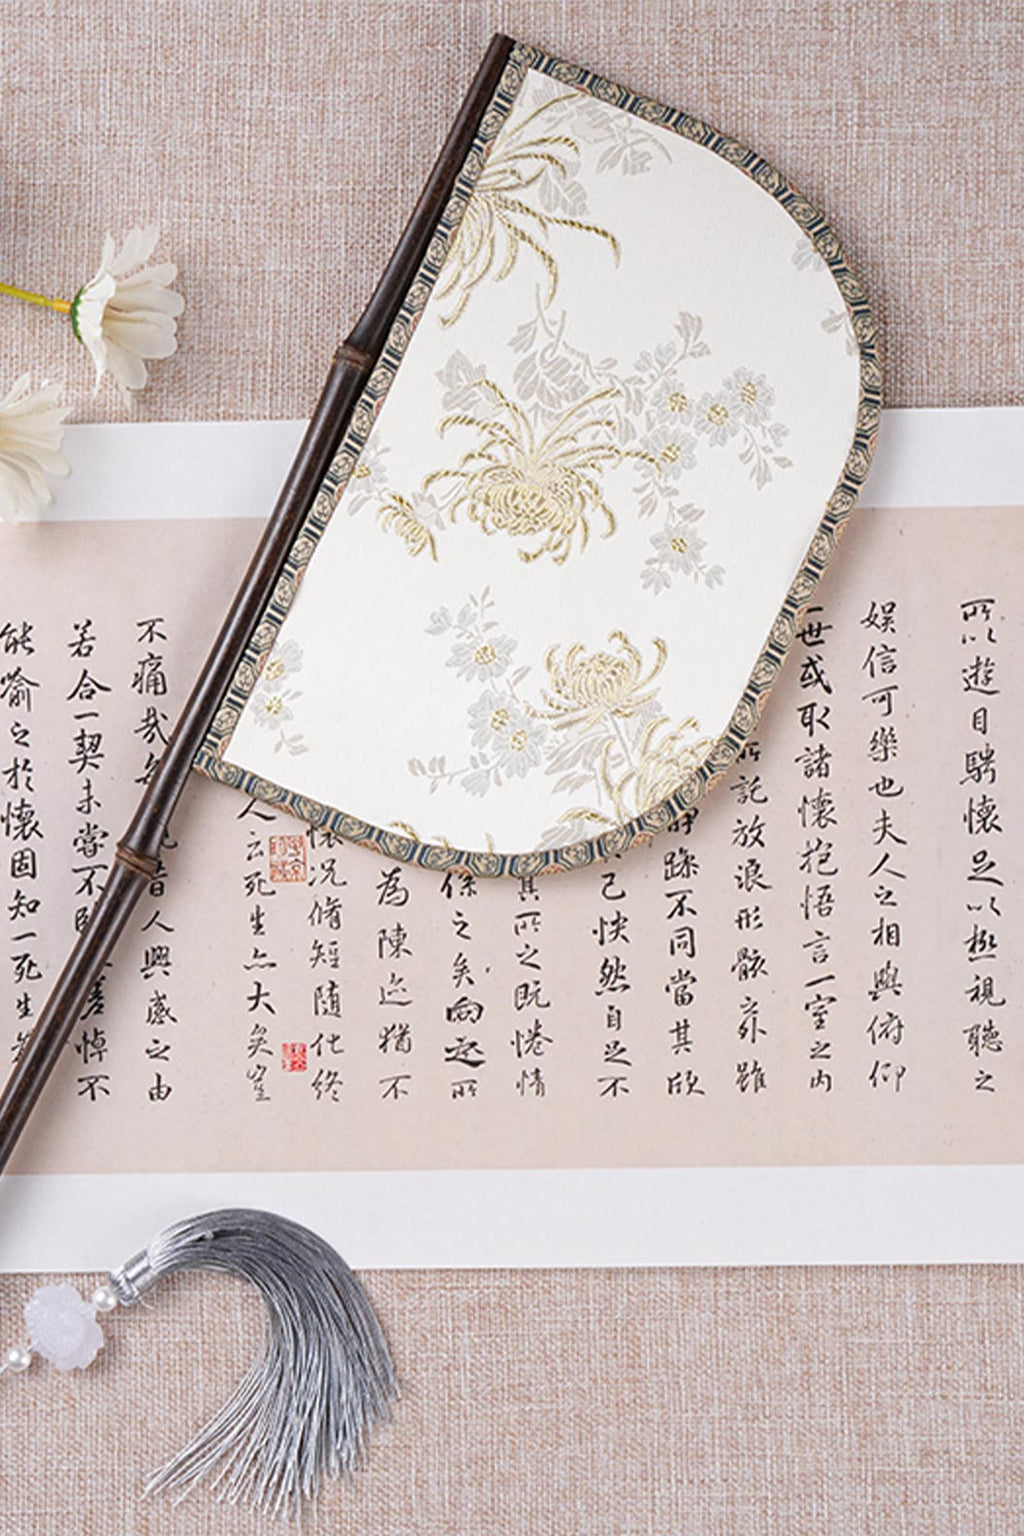 所以遊目騁懷足以極視聽之
娱信可樂也夫人之相與俯仰
世或取諸懷抱悟言一室之内
所託放浪形骸之外雖
躁不同當其欣
己快然自足不
其所之既惓情
係之矣向之所
為陳迹猶不
懷况脩短隨化終
人云死生亦大矣豈
不痛哉每
昔人興感之由
若合一契未嘗不臨
嗟悼不
能喻之於懷固知一死生